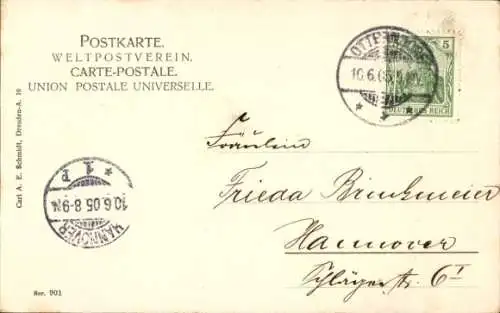 POSTKARTE.
WELTPOSTVEREIN.
CARTE-POSTALE.
UNION POSTALE UNIVERSELLE.
5
DEUTSCHES REICH
10.6.05
Carl A. E. Schmidt, Dresden-A. 16
1 P
10.6.05 8-9N
HANNOVER
Fräulein
Frieda Brinkmeier
Hannover
Schlägerstr. 6 I
Ser. 901